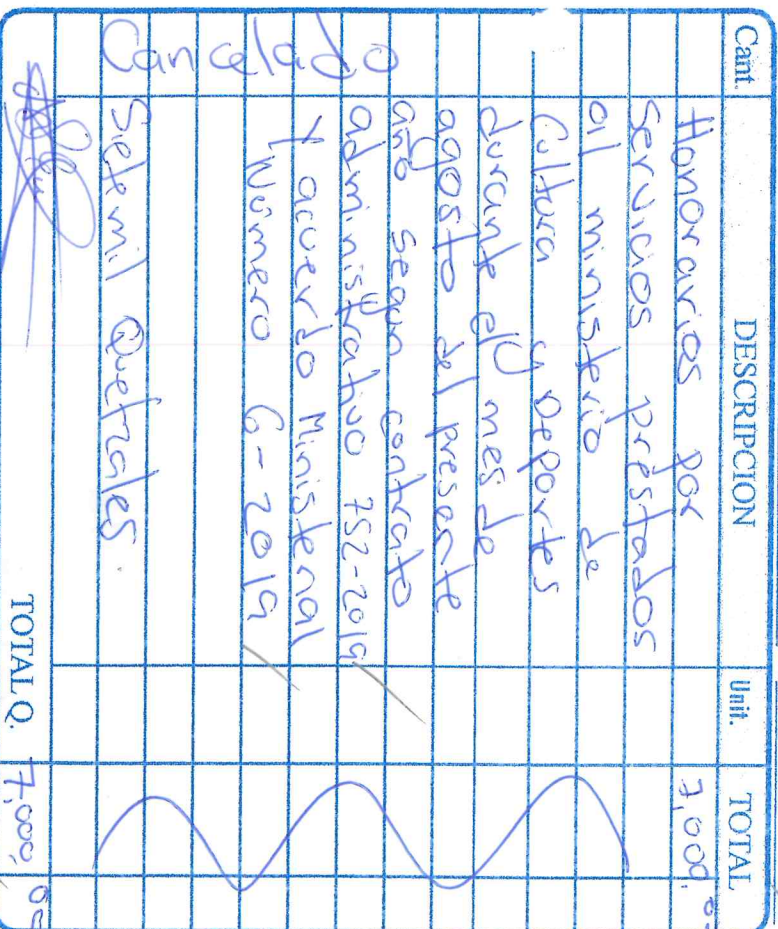 Cant. DESCRIPCION Unit. TOTAL
Honorarios por 7,000.00
servicios prestados
al ministerio de
Cultura y Deportes
durante el mes de
agosto del presente
año segun contrato
administrativo 752-2019
Y acuerdo Ministerial
Número 6-2019
Siete mil Quetzales.
Cancelado
TOTAL Q. 7,000.00